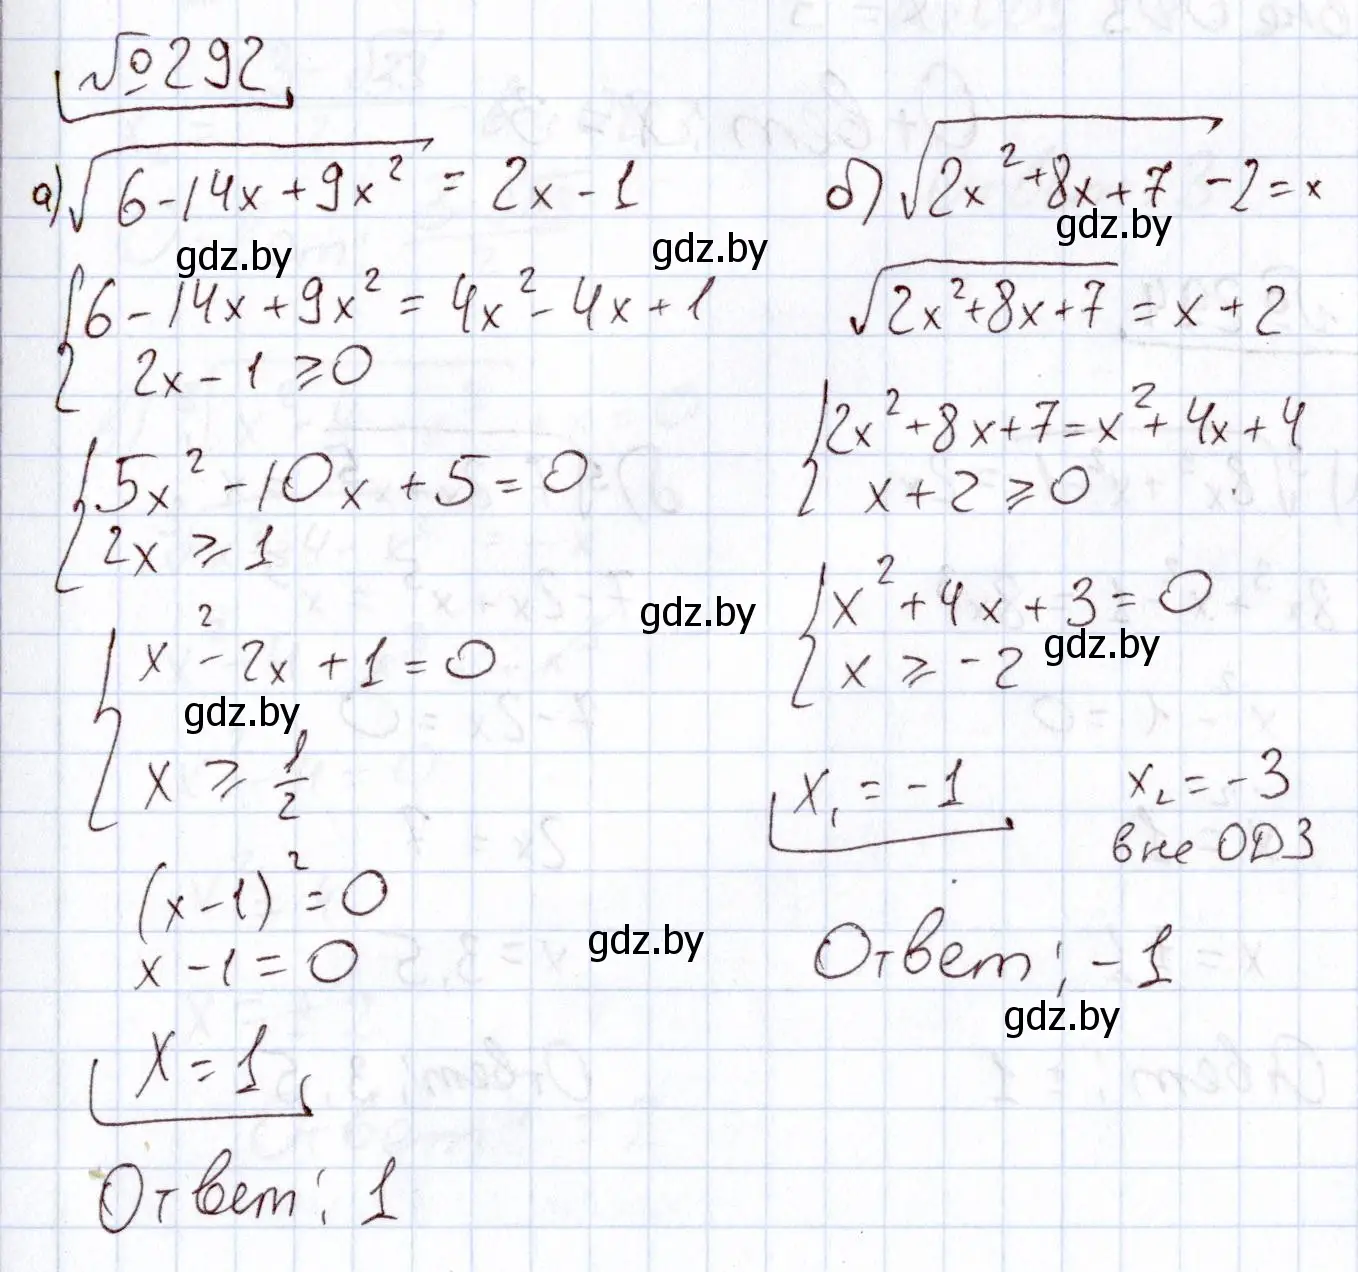 №292
а) √(6-14x+9x²) = 2x-1
gdz.by
gdz.by
{6-14x+9x² = 4x²-4x+1
2x-1 ⩾ 0
{5x²-10x+5=0
2x ⩾ 1
gdz.by
{x²-2x+1=0
gdz.by
x ⩾ 1/2
(x-1)²=0
x-1=0
gdz.by
x=1
Ответ: 1
б) √(2x²+8x+7) -2=x
gdz.by
√(2x²+8x+7) = x+2
{2x²+8x+7=x²+4x+4
x+2 ⩾ 0
{x²+4x+3=0
gdz.by
x ⩾ -2
x₁ = -1 x₂ = -3
вне ОДЗ
Ответ: -1
gdz.by